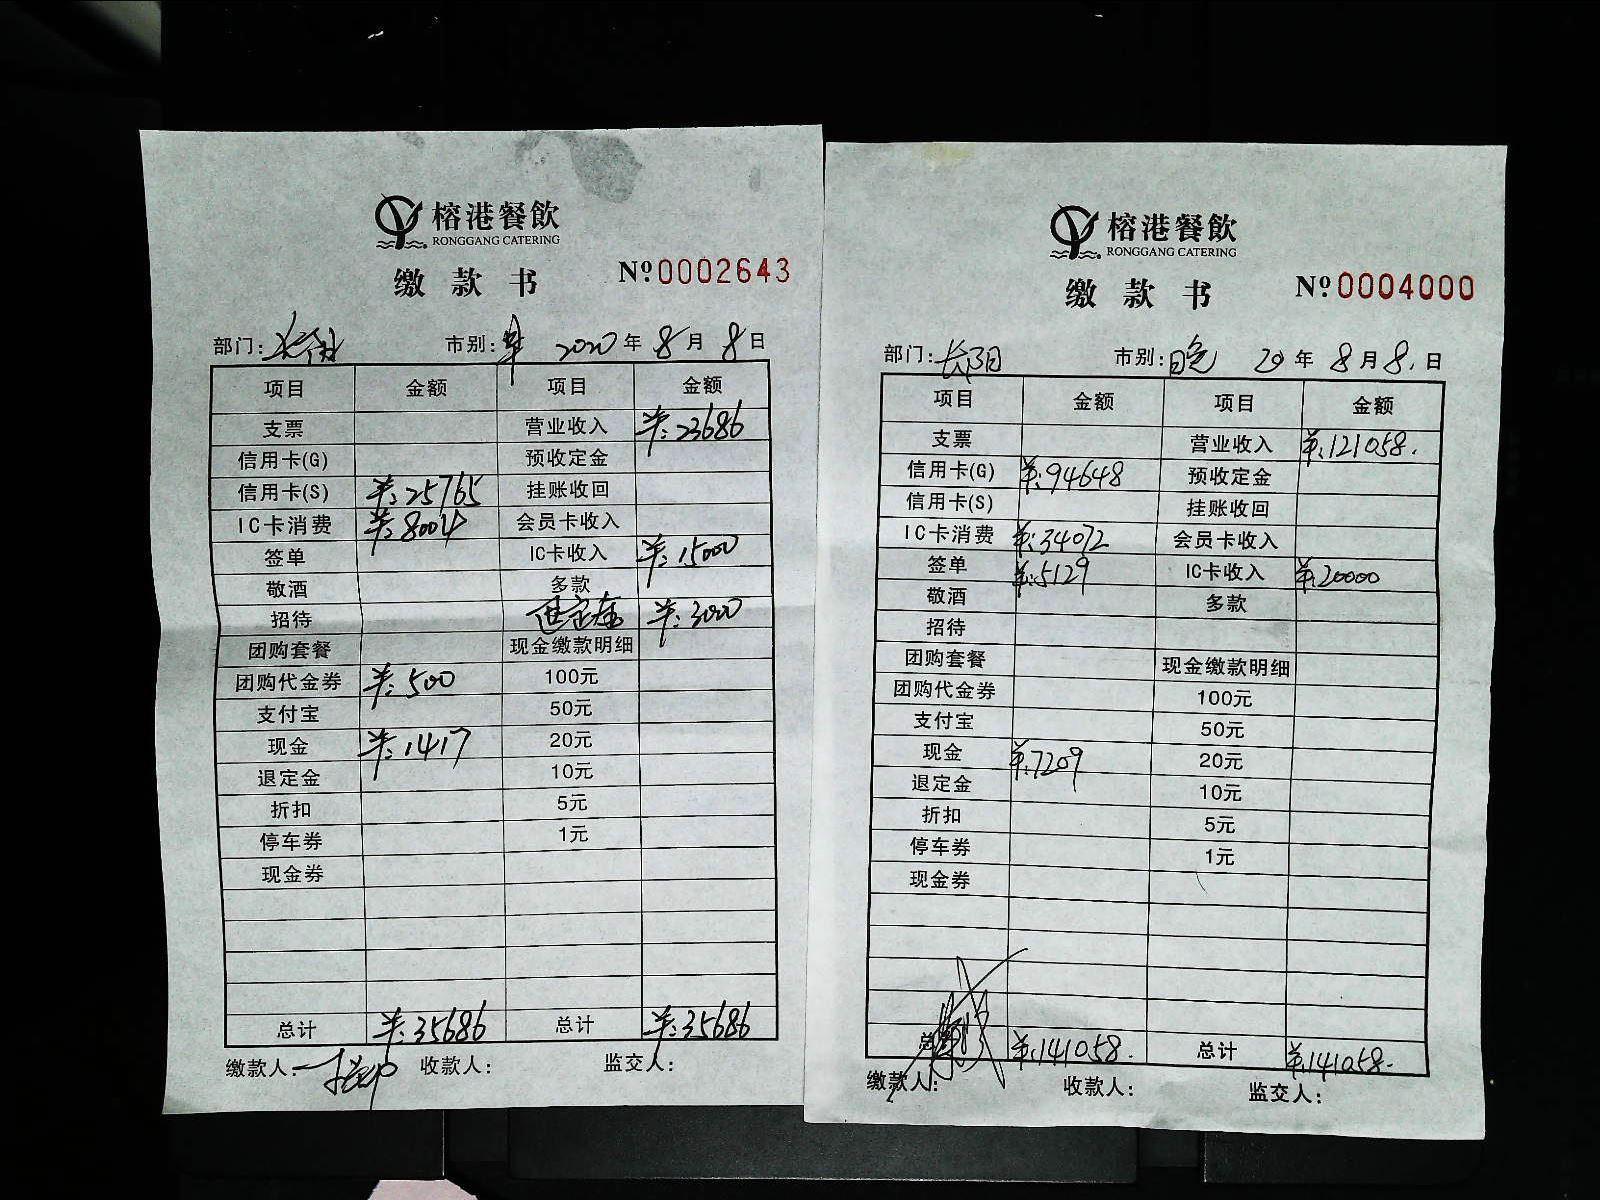 榕港餐飲
RONGGANG CATERING
缴款书 Nº0002643
部门: 市别: 2020年8月8日
项目 金额 项目 金额
支票 营业收入 ¥:23686
信用卡(G) 预收定金
信用卡(S) ¥:25765 挂账收回
IC卡消费 ¥:8004 会员卡收入
签单 IC卡收入 ¥:15000
敬酒 多款
招待 ¥:3000
团购套餐 现金缴款明细
团购代金券 ¥:500 100元
支付宝 50元
现金 ¥:1417 20元
退定金 10元
折扣 5元
停车券 1元
现金券
总计 ¥:35686 总计 ¥:35686
缴款人: 收款人: 监交人:
榕港餐飲
RONGGANG CATERING
缴款书 Nº0004000
部门:长阳 市别:晚 20年8月8日
项目 金额 项目 金额
支票 营业收入 ¥:121058.
信用卡(G) ¥:94648 预收定金
信用卡(S) 挂账收回
IC卡消费 ¥:34072 会员卡收入
签单 ¥:5129 IC卡收入 ¥:20000
敬酒 多款
招待
团购套餐 现金缴款明细
团购代金券 100元
支付宝 50元
现金 ¥:7209 20元
退定金 10元
折扣 5元
停车券 1元
现金券
总计 ¥:141058. 总计 ¥:141058.
缴款人: 收款人: 监交人: